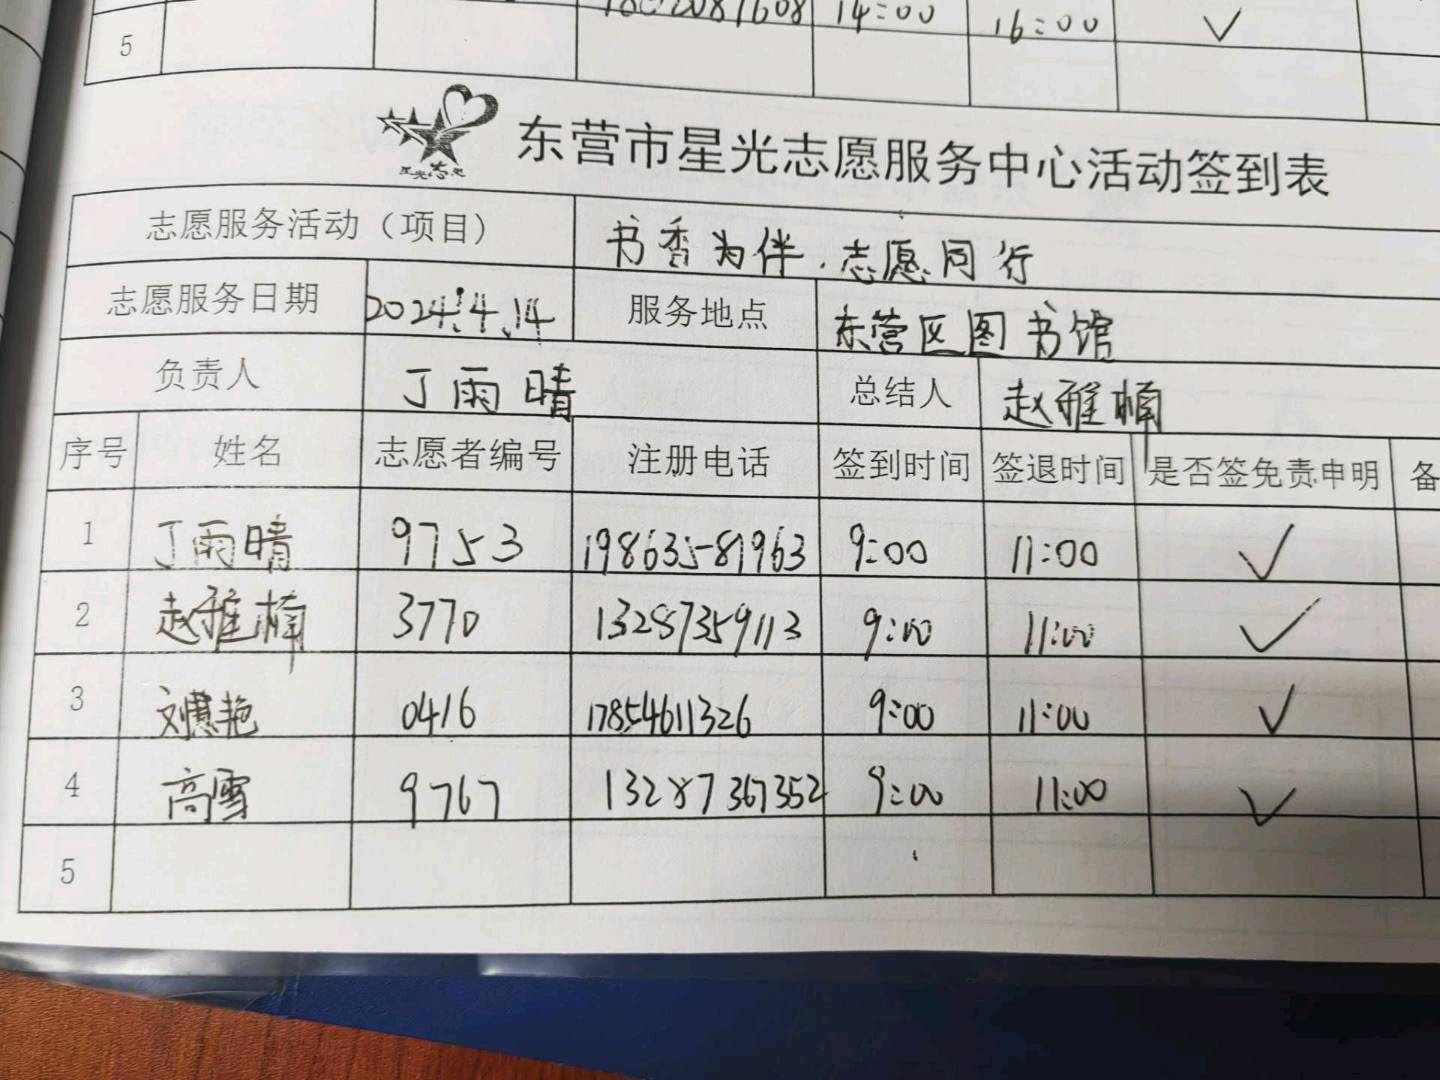 14:00 16:00 ✓
5
东营市星光志愿服务中心活动签到表
志愿服务活动（项目） 书香为伴.志愿同行
志愿服务日期 2024.4.14 服务地点 东营区图书馆
负责人 丁雨晴 总结人 赵雅楠
序号 姓名 志愿者编号 注册电话 签到时间 签退时间 是否签免责申明 备
1 丁雨晴 9753 19863581963 9:00 11:00 ✓
2 赵雅楠 3770 13287359113 9:00 11:00 ✓
3 刘慧艳 0416 17854611326 9:00 11:00 ✓
4 高雪 9767 13287367352 9:00 11:00 ✓
5